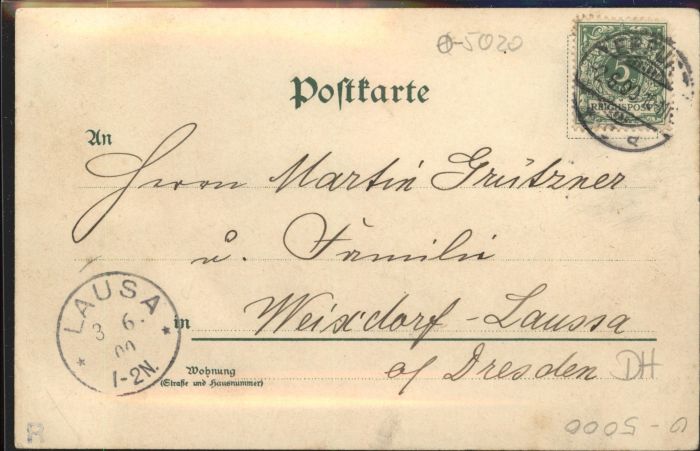 O-5020
5
REICHSPOST
Postkarte
An
Herrn Martin Grützner
u. Familie
in Weixdorf-Laussa
LAUSA
3 6.
00
1-2N.
a/ Dresden
DH
Wohnung
(Straße und Hausnummer)
O-5000